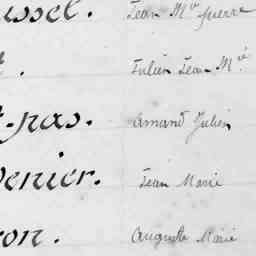 ussel. Jean M^ie pierre
t. Julien Jean M^ie
t-pas. Amand Julien
Denier. Jean Marie
ron. Auguste Marie